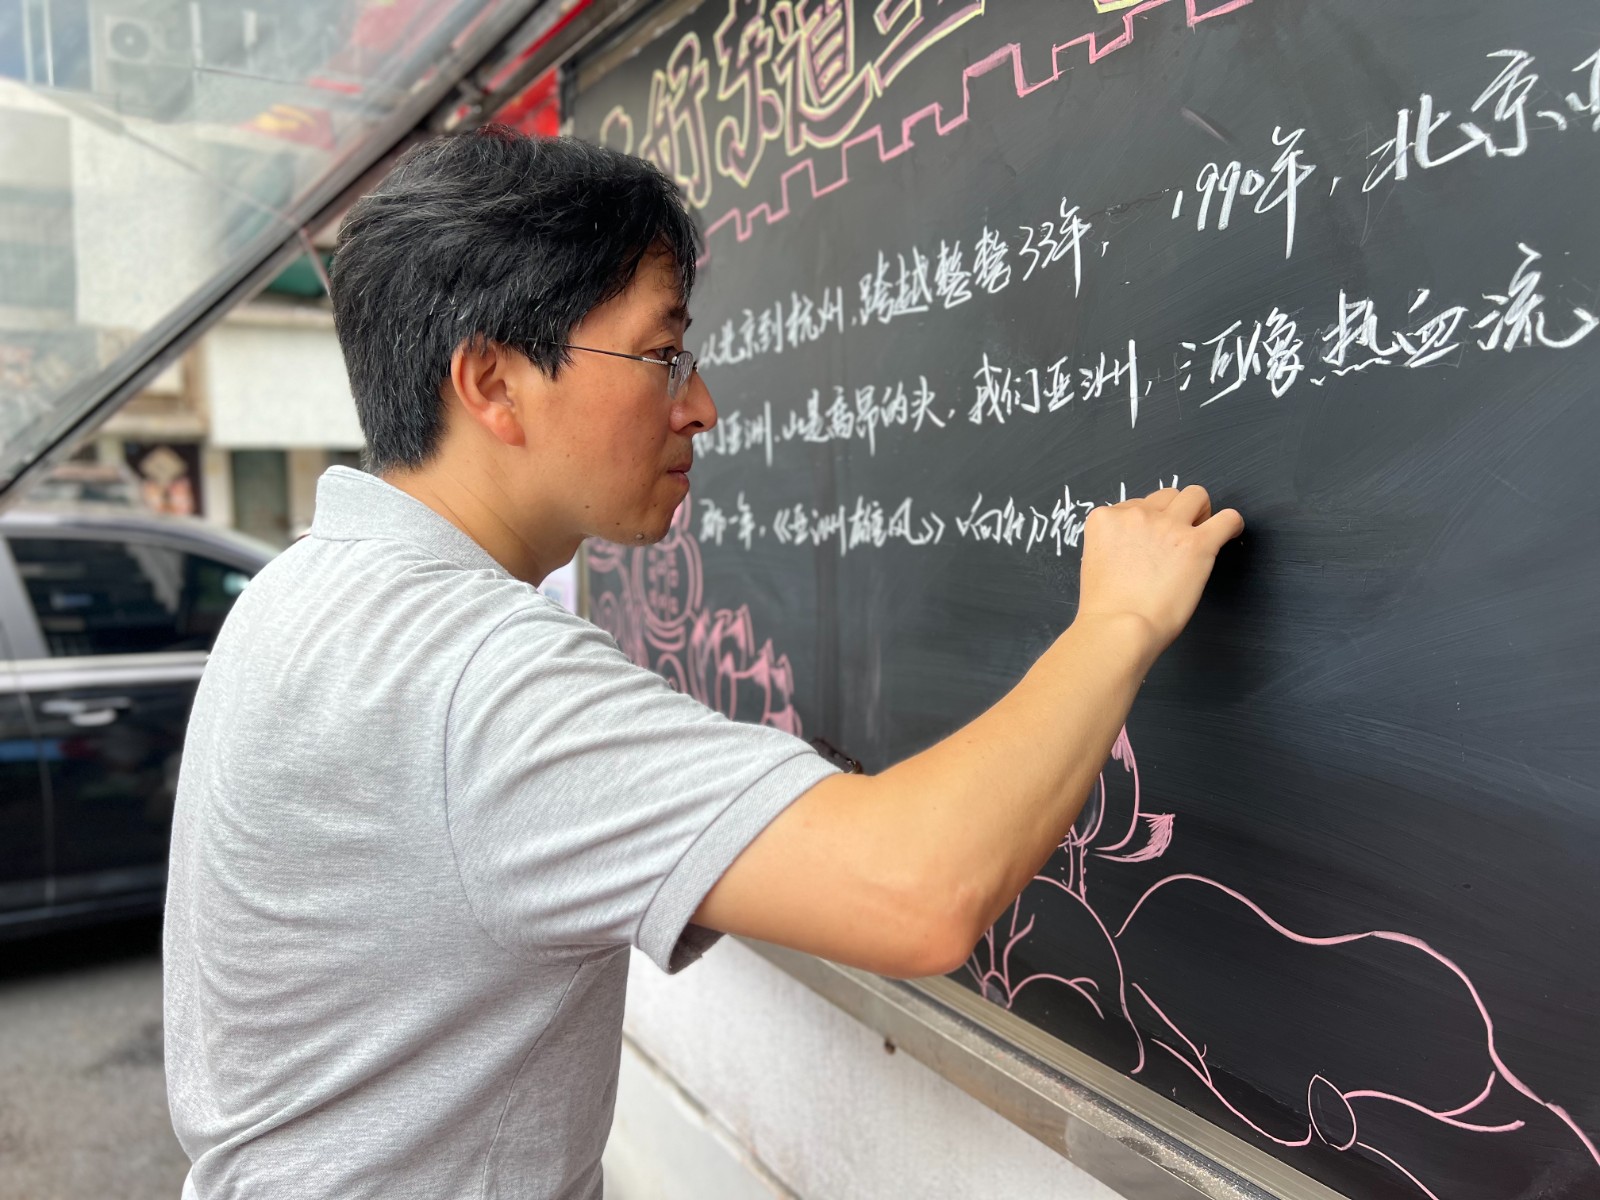 好东道主
从北京到杭州，跨越整整33年，1990年，北京亚
们亚洲，山是高昂的头，我们亚洲，河像热血流，
那一年，《亚洲雄风》响彻街